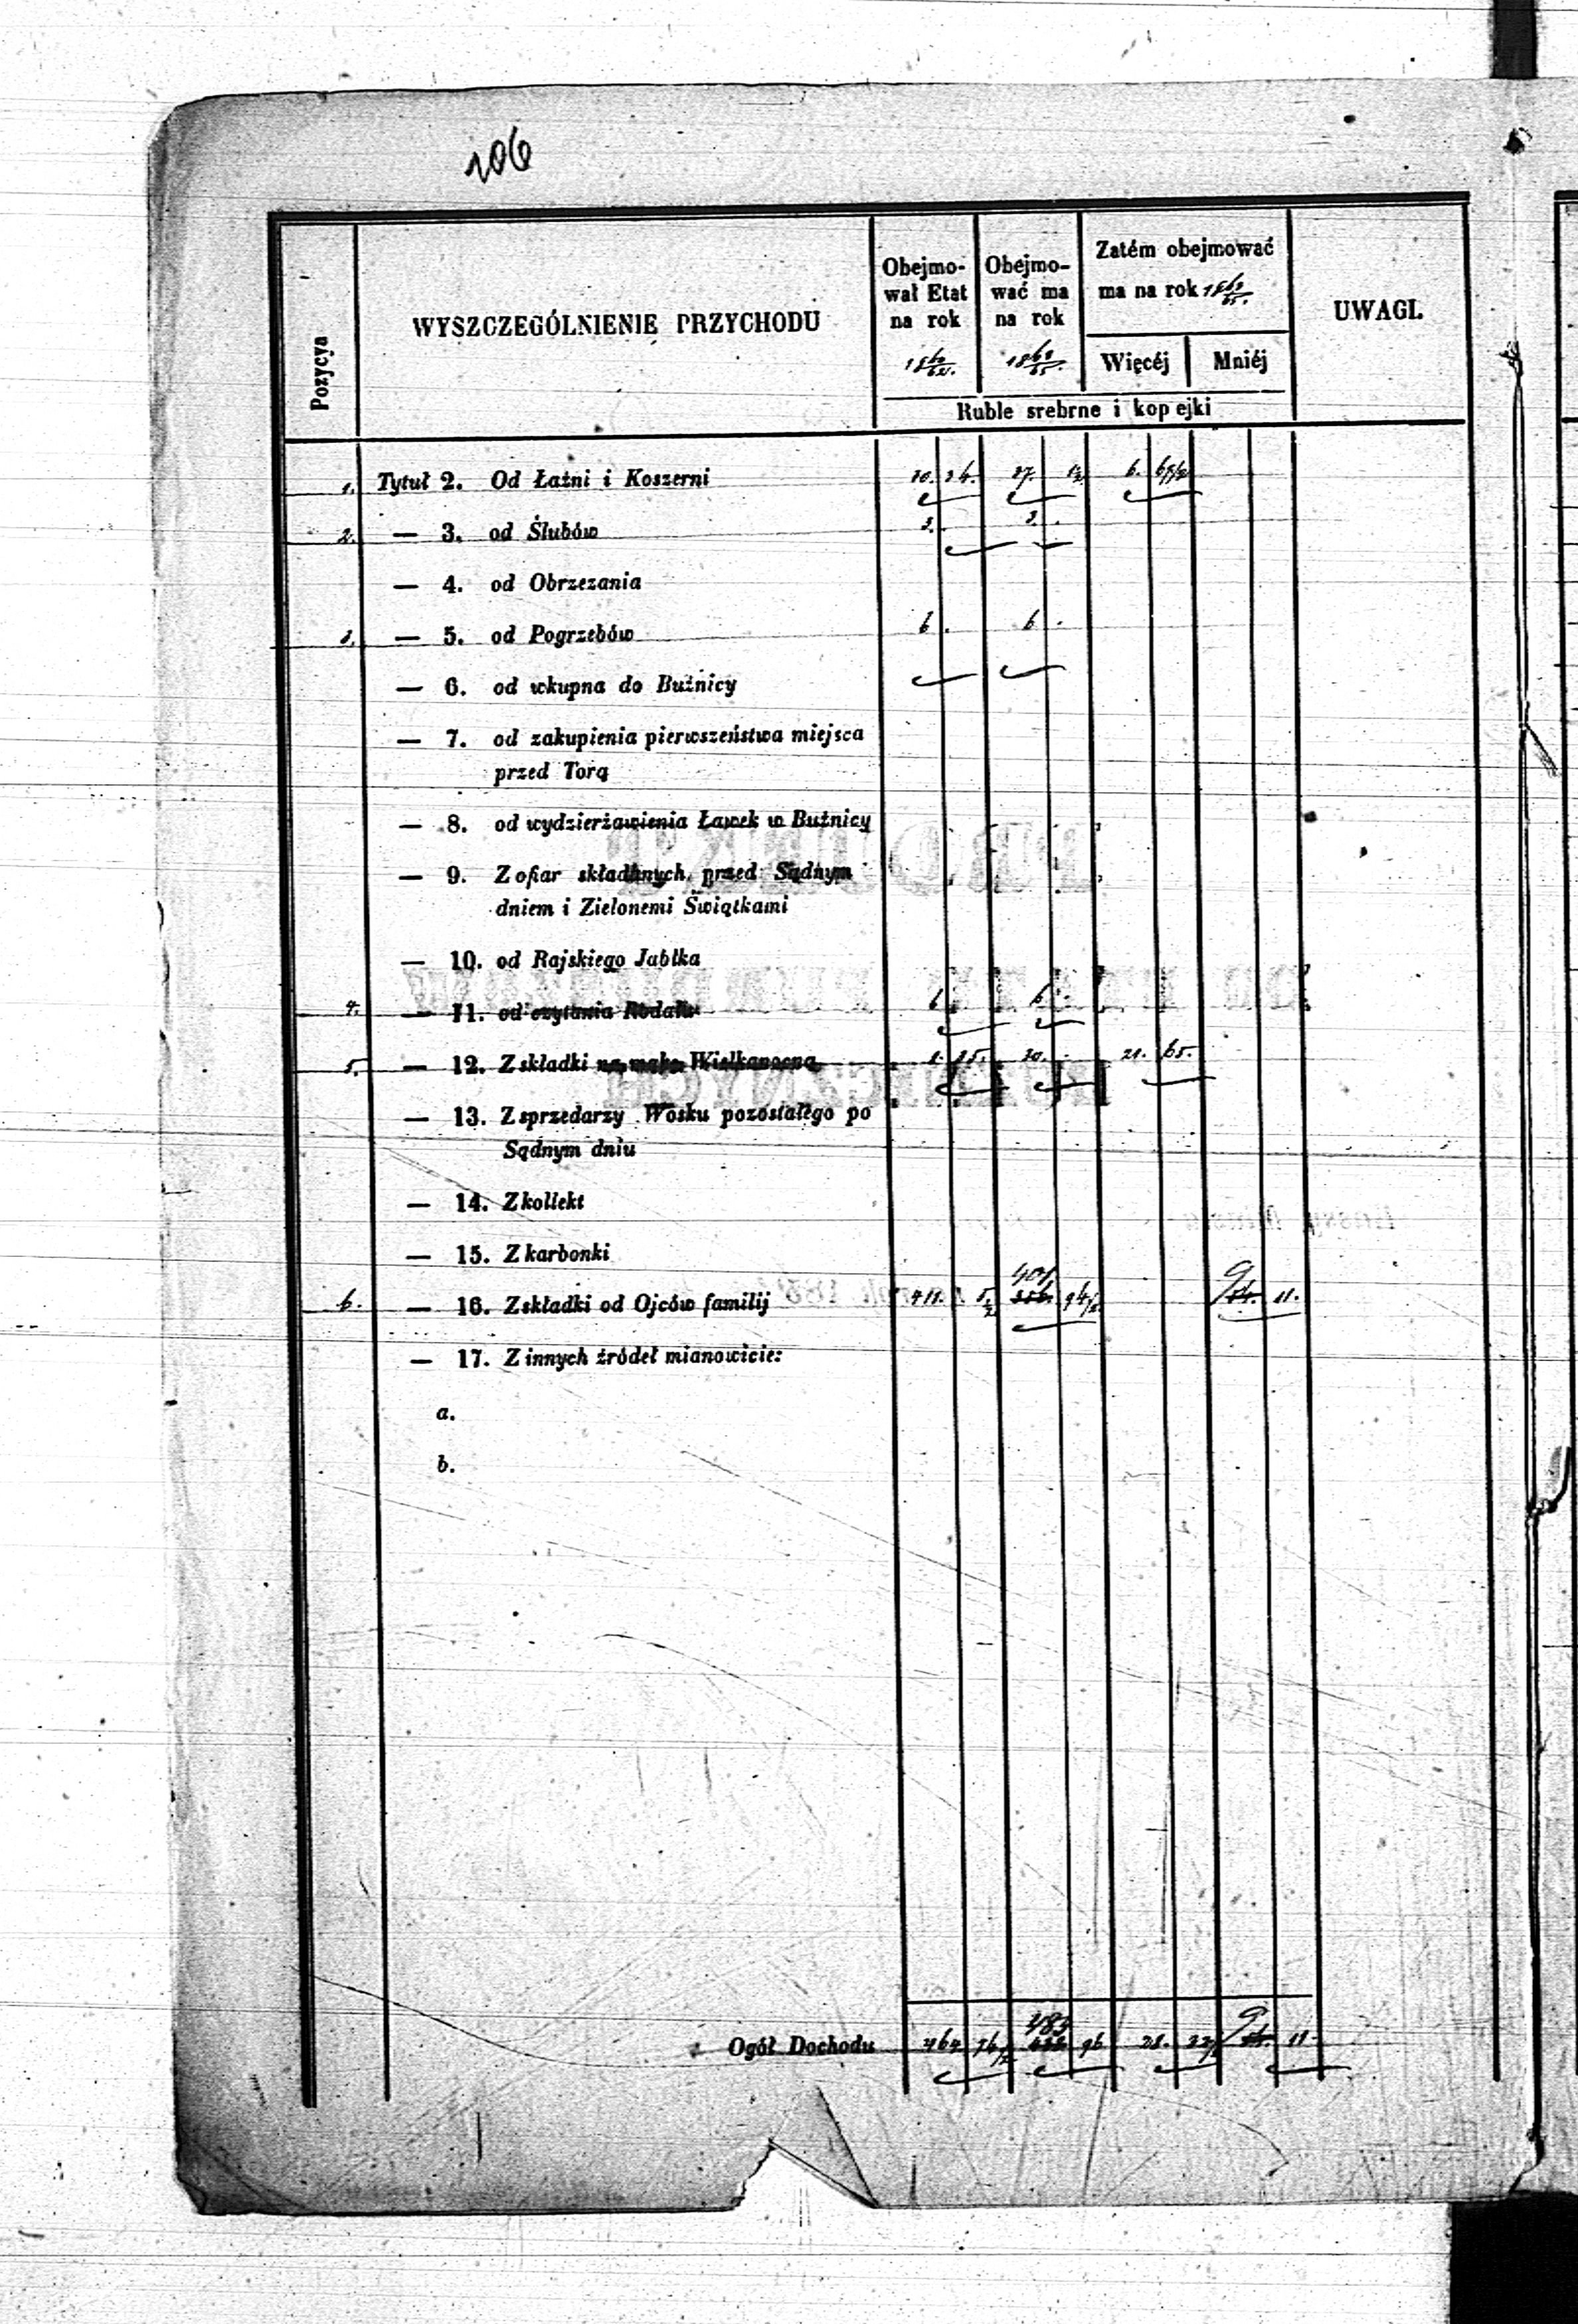 106
Pozycya
WYSZCZEGÓLNIENIE PRZYCHODU
Obejmo-
wał Etat
na rok
Obejmo-
wać ma
na rok
Zatém obejmować
ma na rok
Więcéj
Mniéj
UWAGI.
Ruble srebrne i kopejki
1. Tytuł 2. Od Łaźni i Koszerni 6.
2. — 3. od Ślubów 3. 3.
— 4. od Obrzezania
3. — 5. od Pogrzebów 6 . 6 .
— 6. od wkupna do Bużnicy
— 7. od zakupienia pierwszeństwa miejsca
przed Torą
— 8. od wydzierżawienia Ławek w Bużnicy
— 9. Z ofiar składanych przed Sądnym
dniem i Zielonemi Świątkami
— 10. od Rajskiego Jabłka
4. — 11. od czytania Rodału 6 6
5. — 12. Z składki na mąkę Wielkanocną 21. 65.
— 13. Z sprzedarzy Wosku pozostałego po
Sądnym dniu
— 14. Z kollekt
— 15. Z karbonki
6. — 16. Z składki od Ojców familij 401 9 11.
— 17. Z innych źródeł mianowicie:
a.
b.
Ogół Dochodu 464 483 96 28. 9 11